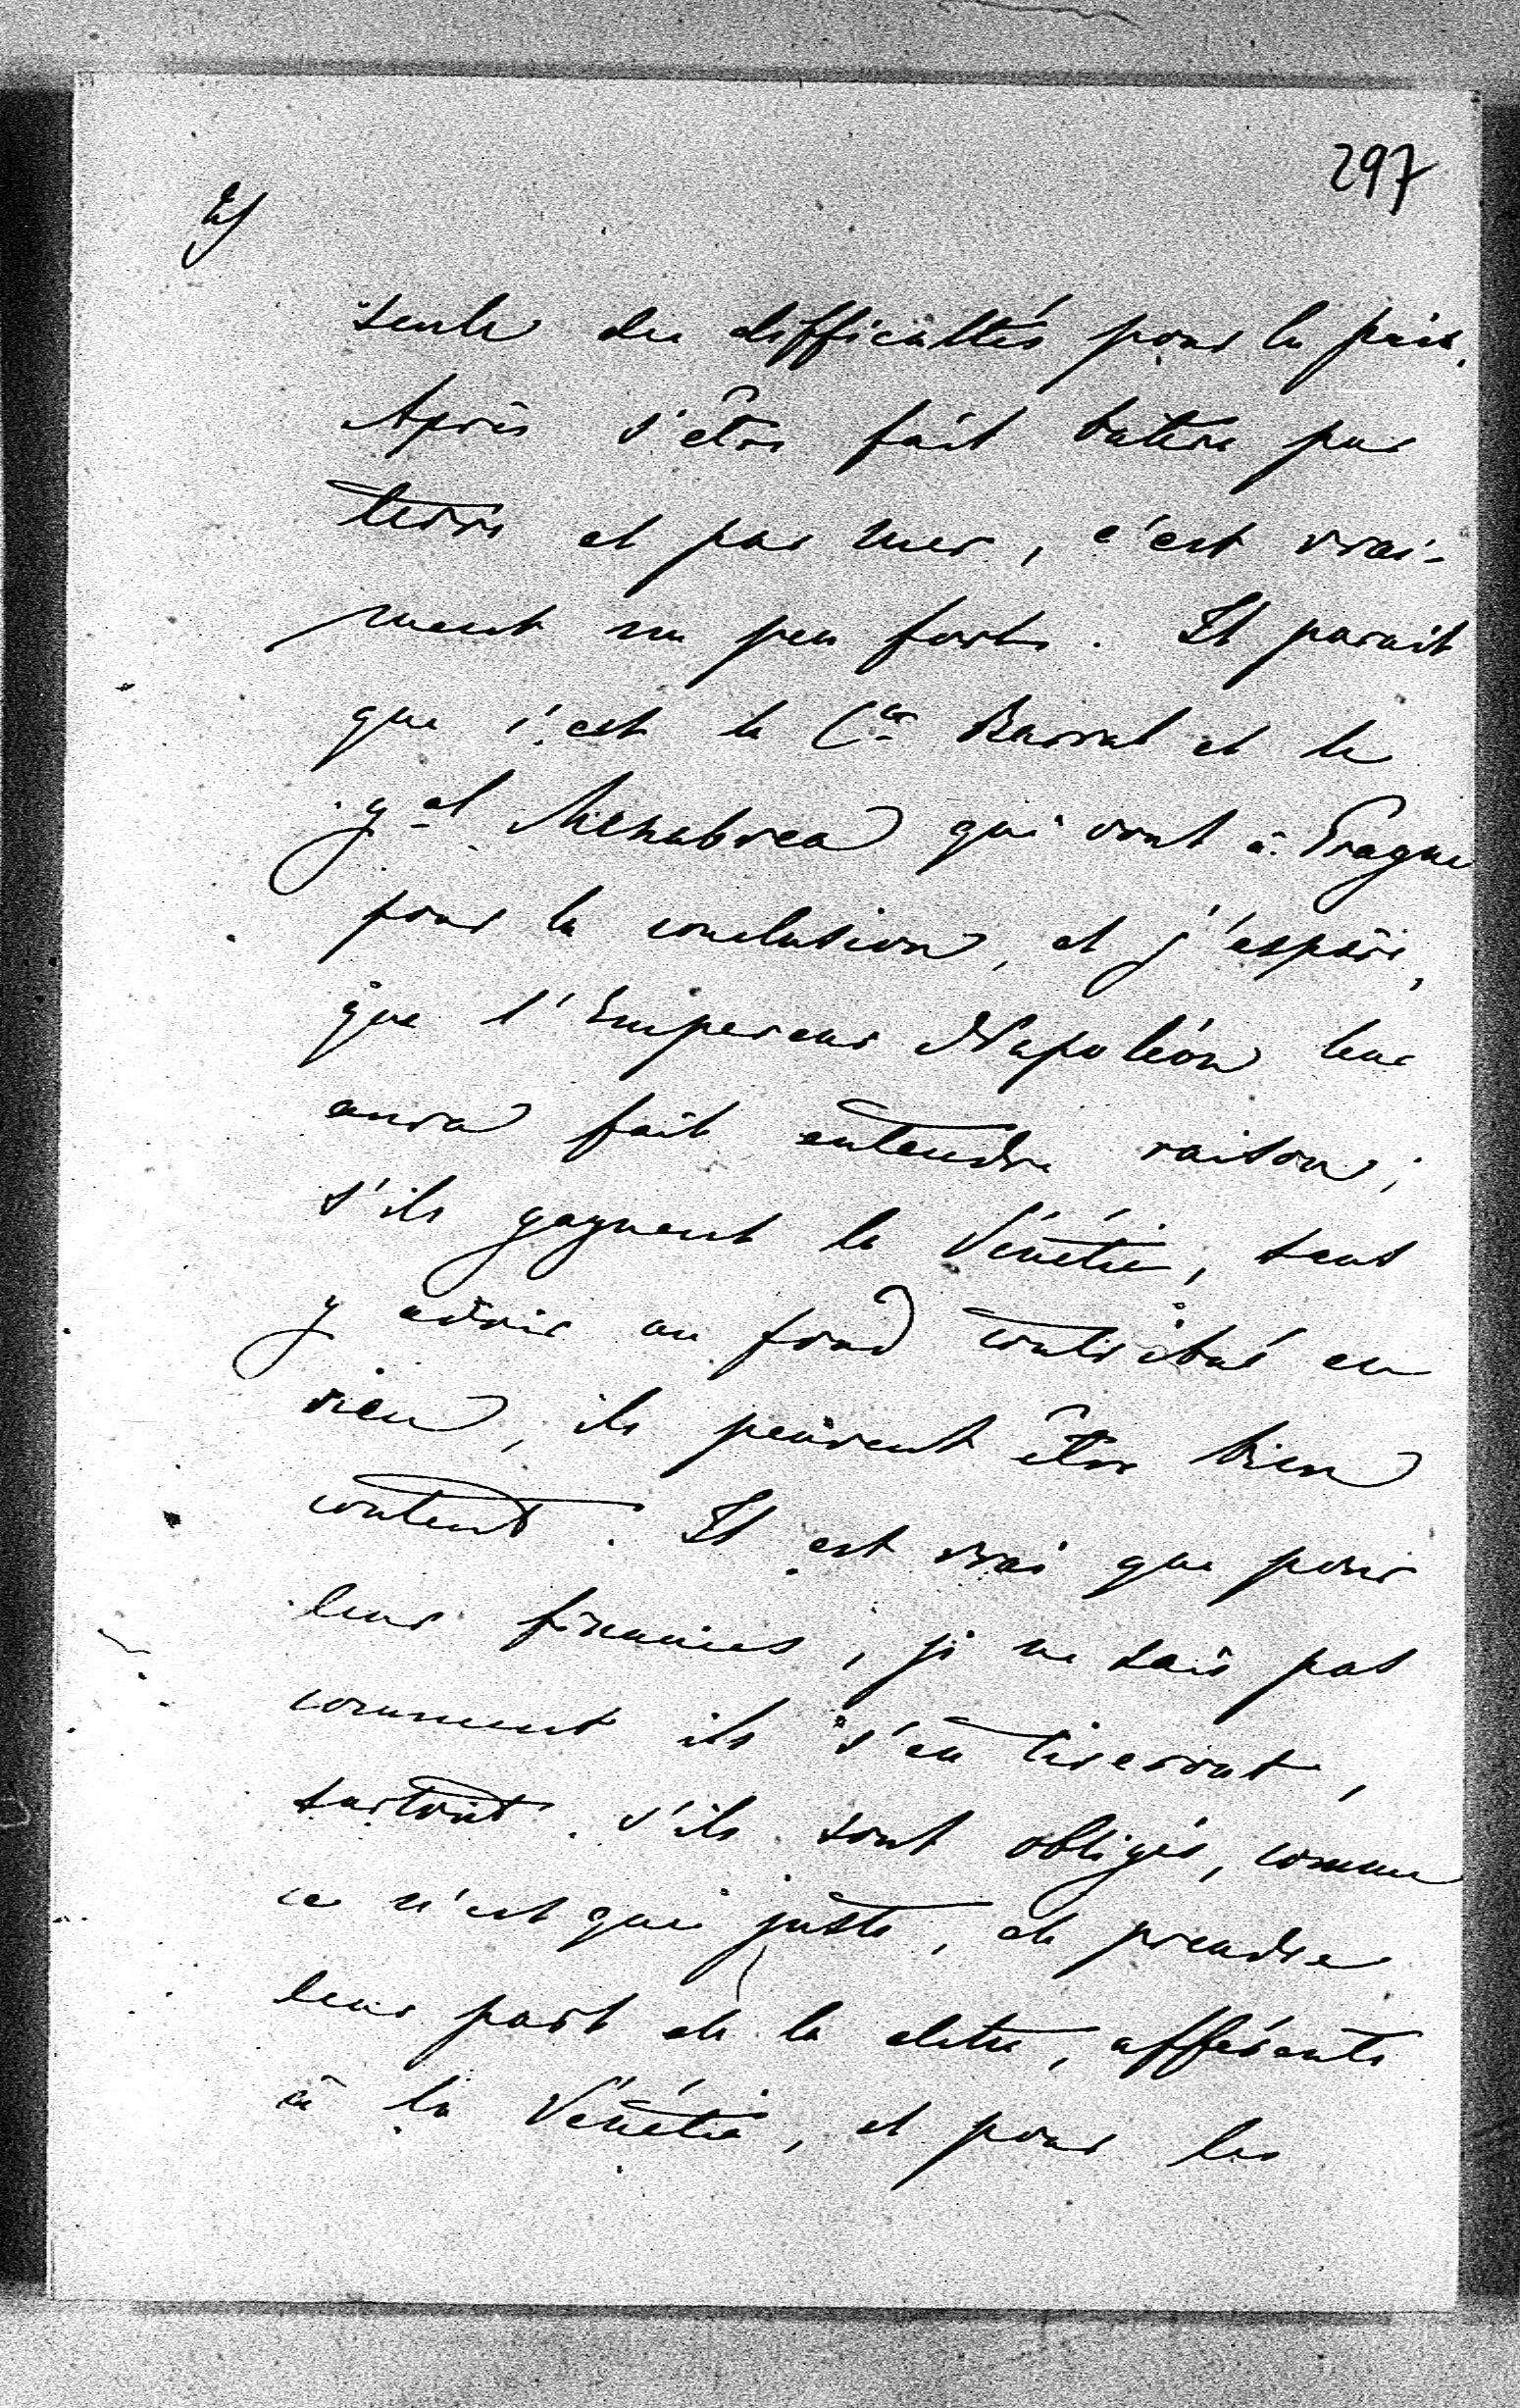 297
seule des difficultés pour la paix.
Après s'être fait battre par
terre et par mer, c'est vrai-
ment un peu fort. Il parait
que c'est le Cte Barral et le
gal Menabrea qui vont à Prague
pour la conclusion, et j'espère,
que l'Empereur Napoléon leur
aura fait entendre raison;
s'ils gagnent la Vénétie, sans
y avoir au fond contribué en
rien, ils peuvent être bien
content. Il est vrai que pour
leurs finances, je ne sais pas
comment ils s'en tireront,
surtout s'ils sont obligés, comme
ce n'est que juste, de prendre
leur part de la dette, afférente
à la Vénétie, et pour les